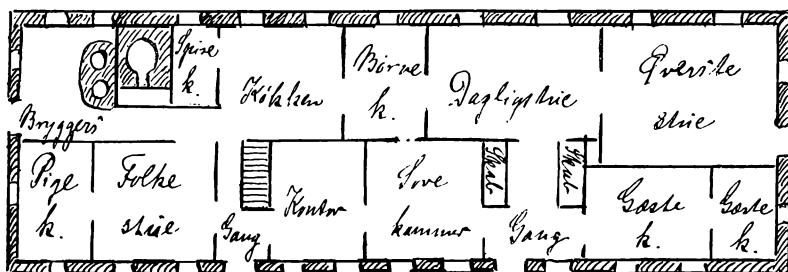 Spise
k.
Køkken
Børne
k.
Dagligstue
Øverste
stue
Bryggers
Pige
k.
Folke
stue
Gang
Kontor
Sove
kammer
Skab
Gang
Skab
Gæste
k.
Gæste
k.